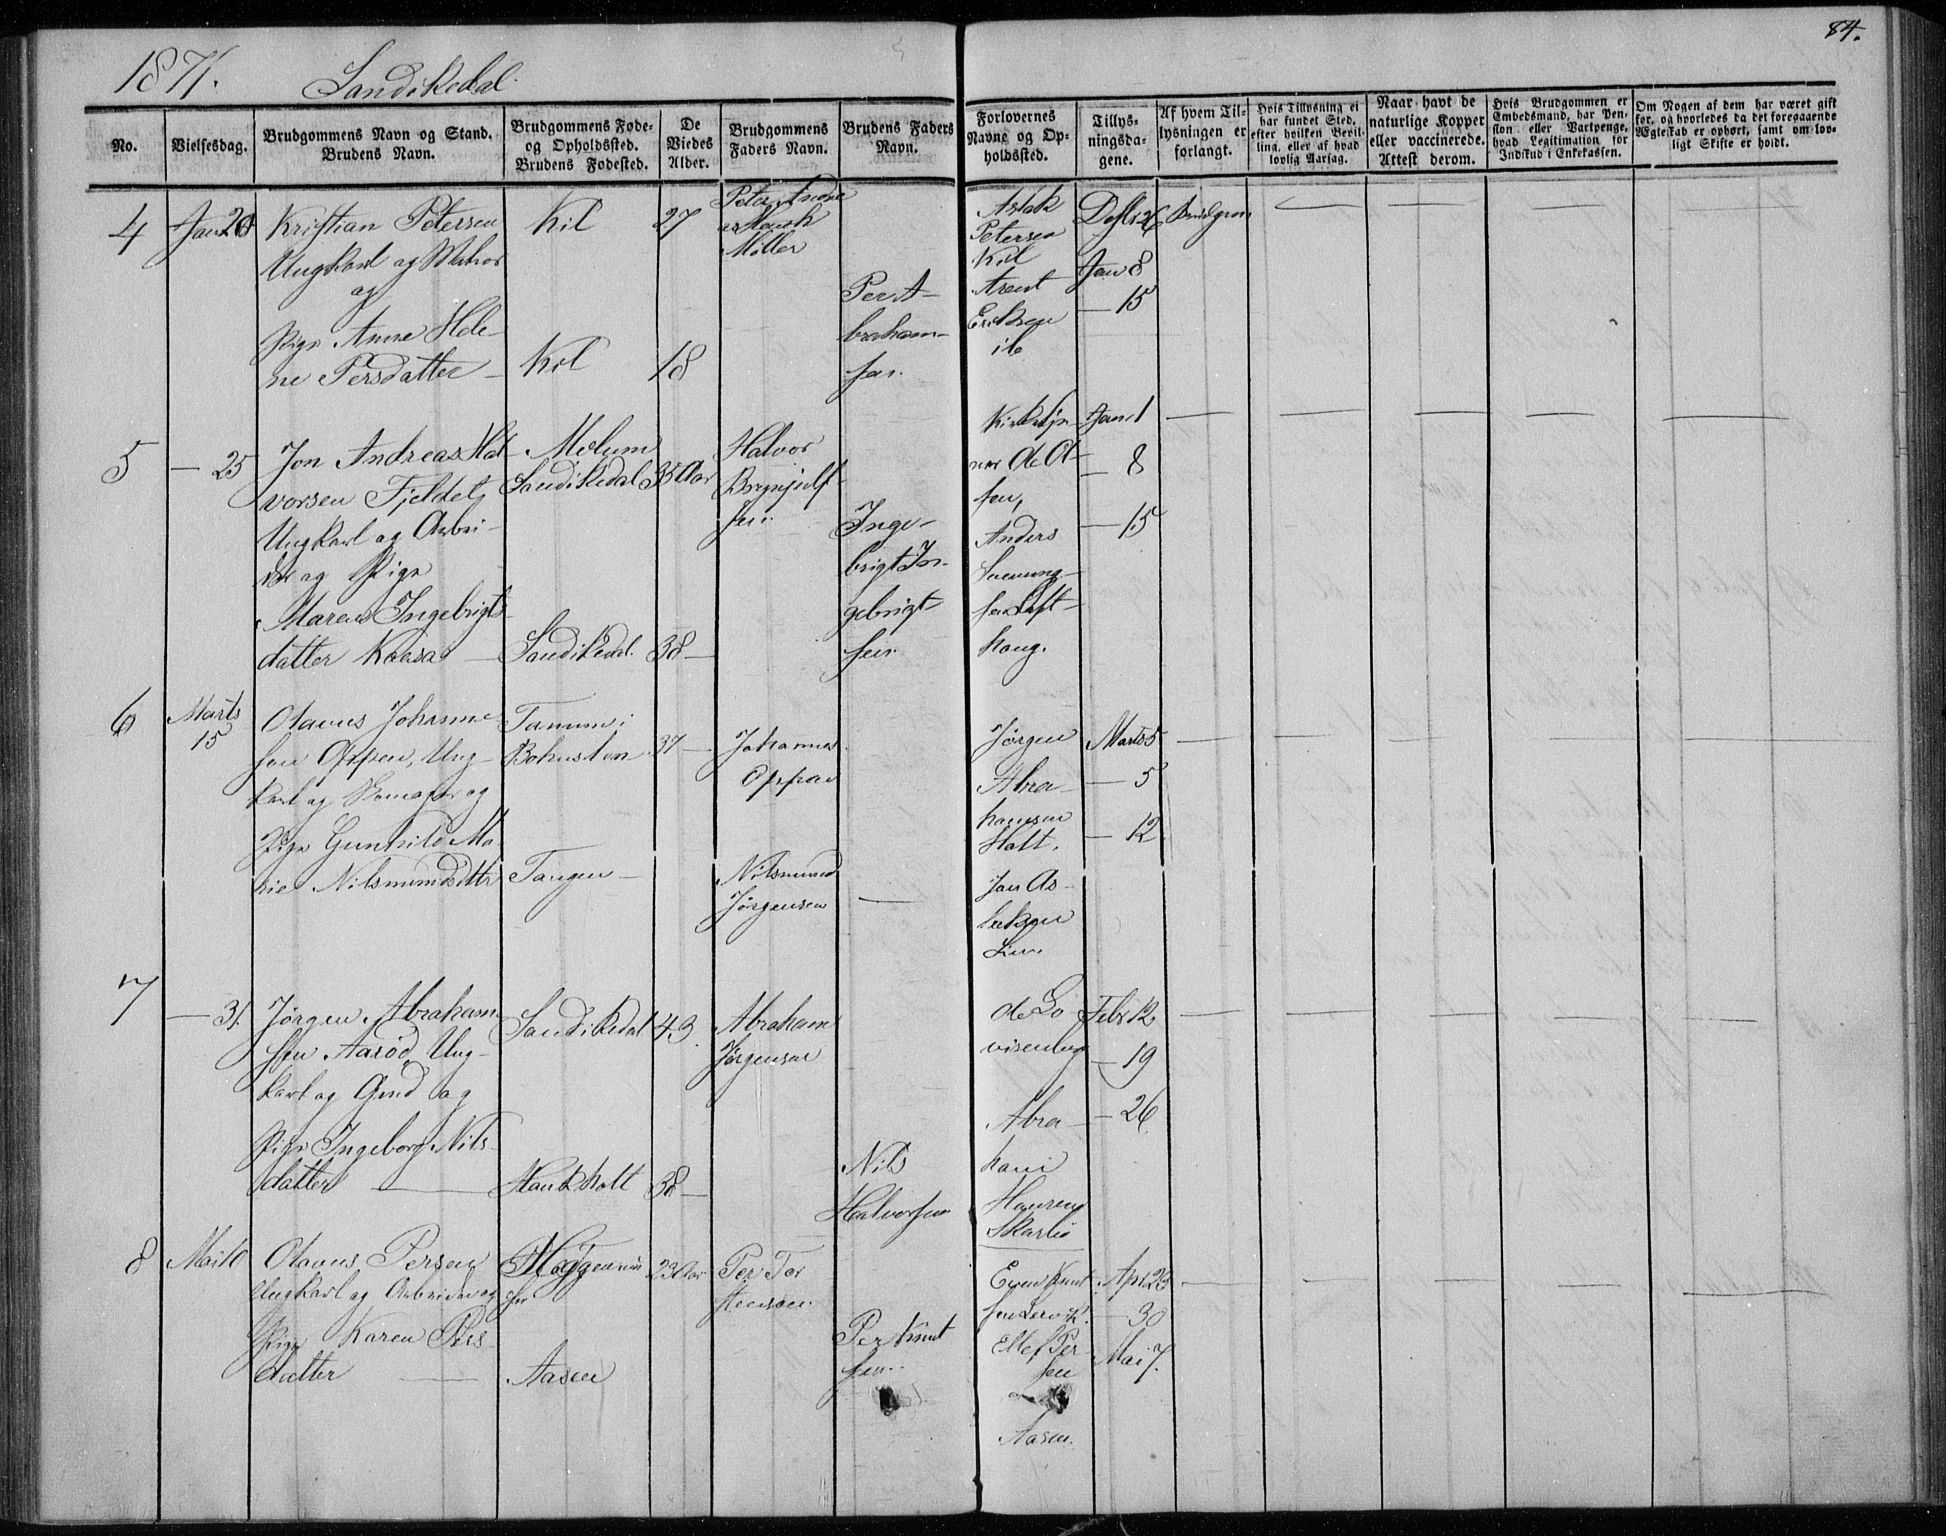 1871. Sandikedal.
84.
No.
Vielsesdag.
Brudgommens Navn og Stand.
Brudens Navn.
Brudgommens Føde-
og Opholdssted.
Brudens Fødested.
De
Viedes
Alder.
Brudgommens
Faders Navn.
Brudens Faders
Navn.
Forlovernes
Navne og Op-
holdssted.
Tillys-
ningsda-
gene.
Af hvem Til-
lysningen er
forlangt.
Hvis Tillysning ei
har fundet Sted,
efter hvilken Bevil-
ling, eller af hvad
lovlig Aarsag.
Naar havt de
naturlige Kopper
eller vaccinerede.
Attest derom.
Hvis Brudgommen er
Embedsmand, har Pen-
sion eller Vartpenge,
hvad Legitimation for
Indskud i Enkekassen.
Om Nogen af dem har været gift
før, og hvorledes da det foregaaende
Ægteskab er ophørt, samt om lov-
ligt Skifte er holdt.
4
Jan 20
Kristian Petersen
Ungkarl og
og
Pige Anne Hele-
ne Persdatter
Kil
Kil
27
18
Peter Andre
Møller
Per A-
braham-
sen.
Aslak
Petersen
Kil
Arent
Eriksen
ib
Jan 8
— 15
5
— 25
Jon Andreas Hal-
vorsen Fjeldet,
Ungkarl og Arbei-
der og Pige
Maren Ingebrigts-
datter Kaasa
Melum
Sandikedal
Sandikedal.
35 Aar
38 —
Halvor
Brynjulf-
sen.
Inge-
brigt In-
gebrigt-
sen.
Kirketje-
ner
sen,
Anders
haug.
Jan. 1
— 8
— 15
6
Marts
15
Olavus Johanne-
sen Oppen, Ung-
karl og Skomager og
Pige Gunhild Ma-
rie Nilsmundsdttr
Tanum i
Bohuslen
Tangen —
37 —
Johannes
Oppen
Nilsmund
Jørgensen
—
Jørgen
Abra-
hamsen
Holt.
Jan As-
laksen
Lien
Marts 5
— 5
— 12
7
— 31.
Jørgen Abraham-
sen Aarød, Ung-
karl og Grnd og
Pige Ingeborg Nils-
datter —
Sandikedal
Haukholt
43
38 —
Abraham
Jørgensen
Nils
Halvorsen
Abra-
ham
Hansen
Febr 12
— 19
— 26
8
Mai 10
Olavus Persen
Ungkarl og Arbeider og
Pige Karen Pers-
datter —
Aasen
23 Aar
Per Tor
stensen.
Per Knut
sen.
Even Knut
sen
Ellef Per-
sen
Aasen.
Apr 23
— 30
Mai 7.